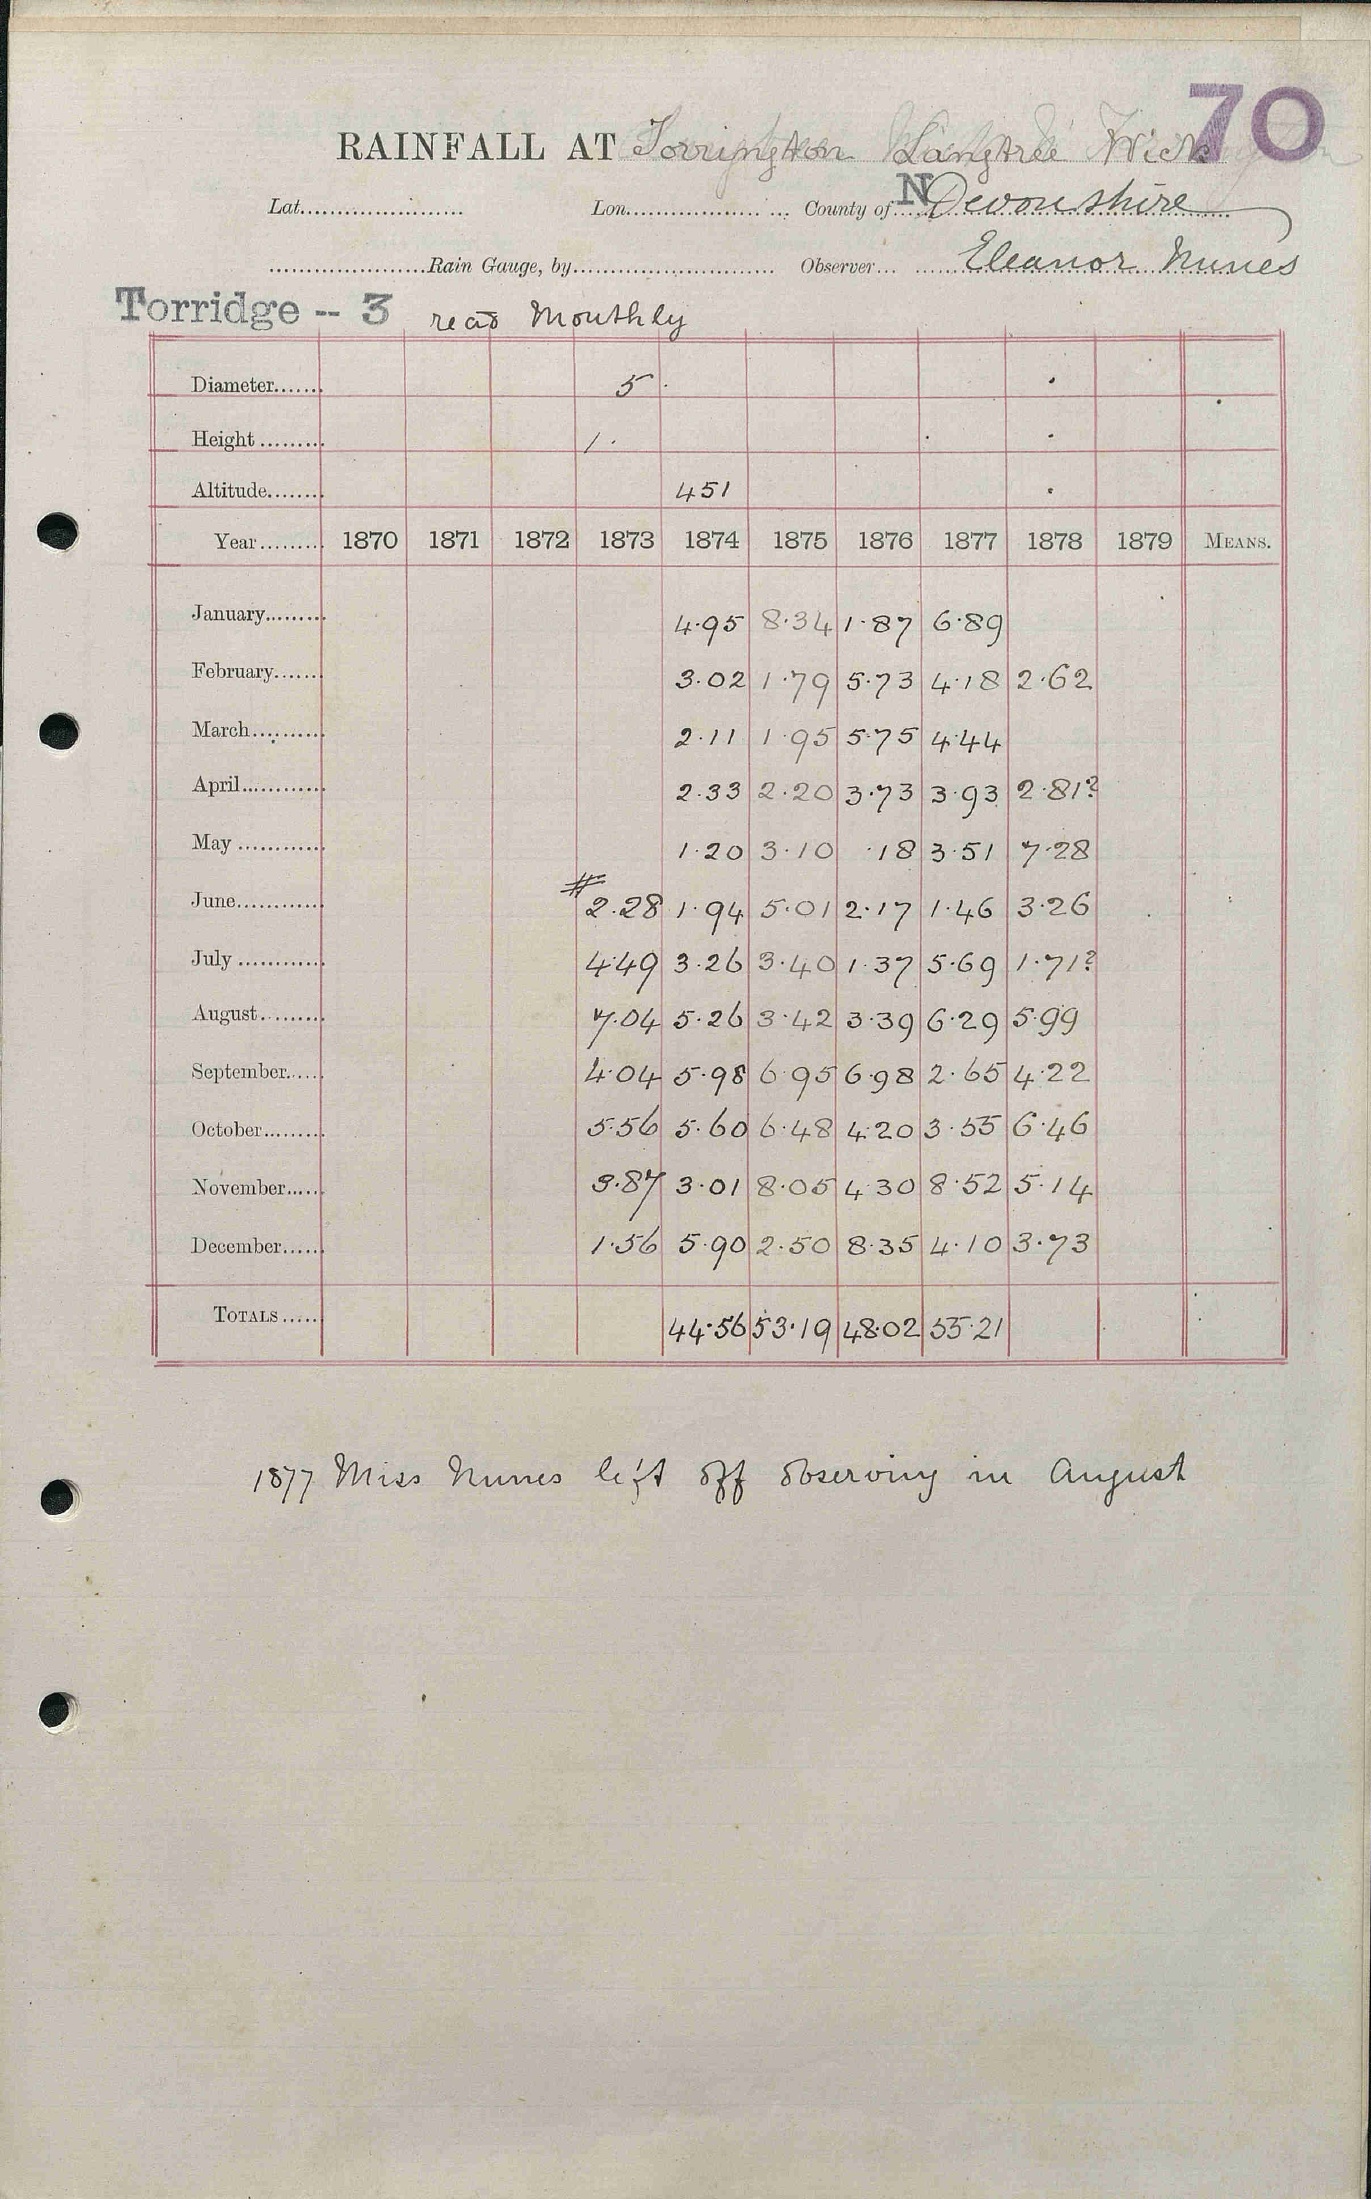 70
RAINFALL AT Torrington Langtree Wick
Lat. Lon. County of N Devonshire
Rain Gauge, by Observer Eleanor Nunes
Torridge -- 3 read Monthly
Diameter 5
Height 1.
Altitude 451
Year 1870 1871 1872 1873 1874 1875 1876 1877 1878 1879 MEANS.
January 4.95 8.34 1.87 6.89
February 3.02 1.79 5.73 4.18 2.62
March 2.11 1.95 5.75 4.44
April 2.33 2.20 3.73 3.93 2.81?
May 1.20 3.10 .18 3.51 7.28
June # 2.28 1.94 5.01 2.17 1.46 3.26
July 4.49 3.26 3.40 1.37 5.69 1.71?
August 7.04 5.26 3.42 3.39 6.29 5.99
September 4.04 5.98 6.95 6.98 2.65 4.22
October 5.56 5.60 6.48 4.20 3.55 6.46
November 3.87 3.01 8.05 4.30 8.52 5.14
December 1.56 5.90 2.50 8.35 4.10 3.73
TOTALS 44.56 53.19 48.02 55.21
1877 Miss Nunes left off observing in August